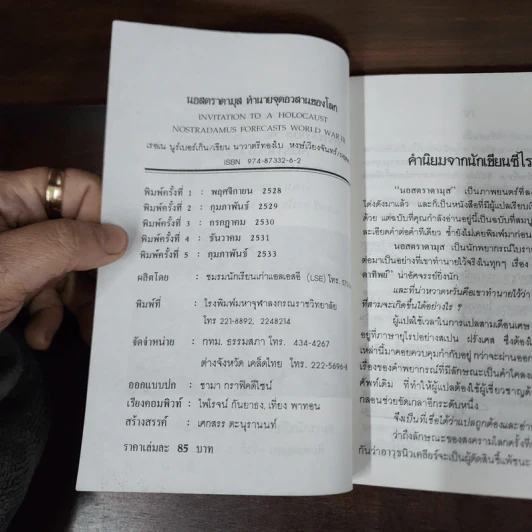 นอสตราดามุส ทำนายจุดอวสานของโลก
INVITATION TO A HOLOCAUST
NOSTRADAMUS FORECASTS WORLD WAR III
เรอเน นูร์เบอร์เกิน/เรียน นาวาตรีทองใบ หงษ์เวียงจันทร์/
ISBN 974-87332-6-2
พิมพ์ครั้งที่ 1 : พฤศจิกายน 2528
พิมพ์ครั้งที่ 2 : กุมภาพันธ์ 2529
พิมพ์ครั้งที่ 3 : กรกฎาคม 2530
พิมพ์ครั้งที่ 4 : ธันวาคม 2531
พิมพ์ครั้งที่ 5 : กุมภาพันธ์ 2533
ผลิตโดย : ชมรมนักเรียนเก่าแอลเอสอี (LSE) โทร.
พิมพ์ที่ : โรงพิมพ์มหาจุฬาลงกรณราชวิทยาลัย
โทร 221-8892, 2248214
จัดจำหน่าย : กทม. ธรรมสภา โทร. 434-4267
ต่างจังหวัด เคล็ดไทย โทร. 222-5696-8
ออกแบบปก : ชามา กราฟิคดีไซน์
เรียงคอมพิวท์ : ไพโรจน์ กันยาธง, เที่ยง พาทอน
สร้างสรรค์ : เศกสรร ตะนุรานนท์
ราคาเล่มละ 85 บาท
คำนิยมจากนักเขียนซีไร
"นอสตราดามุส" เป็นภาพยนตร์ที่
โด่งดังมาแล้ว และก็เป็นหนังสือที่มีผู้แปลเรียบเรี
ด้วย แต่ฉบับที่คุณกำลังอ่านอยู่นี้เป็นฉบับที่สมบู
ละเอียดคำต่อคำทีเดียว ซ้ำยังไม่เคยพิมพ์มาก่อน
นอสตราดามุส เป็นนักพยากรณ์โบรา
ต่อมาเป็นอย่างที่เขาทำนายไว้จริงในทุกๆ เรื่อง
ดาทิพย์" น่าอัศจรรย์ยิ่งนัก
และที่น่าหวาดหวั่นคือเขาทำนายไว้ว่า
ที่สามจะเกิดขึ้นได้อย่างไร ?
ผู้แปลใช้เวลาในการแปลสามเดือนเศษ
อยู่ที่ภาษายุโรปอย่างสเปน ฝรั่งเศส ซึ่งต้อง
เหล่านี้มาคอยควบคุมกำกับอยู่ กว่าจะผ่านออก
เรื่องของคำพยากรณ์ที่มีลักษณะเป็นคำโคลง
ศัพท์เดิม ที่ทำให้ผู้แปลต้องใช้ผู้เชี่ยวชาญด้
กลอนช่วยขัดเกลาอีกระดับหนึ่ง
จึงเป็นที่เชื่อได้ว่าแปลถูกต้องและอ่า
ว่าถึงลักษณะของสงครามโลกครั้งที่
กันว่าอาวุธนิวเคลียร์จะเป็นผู้ตัดสินชี้แพ้ชนะ